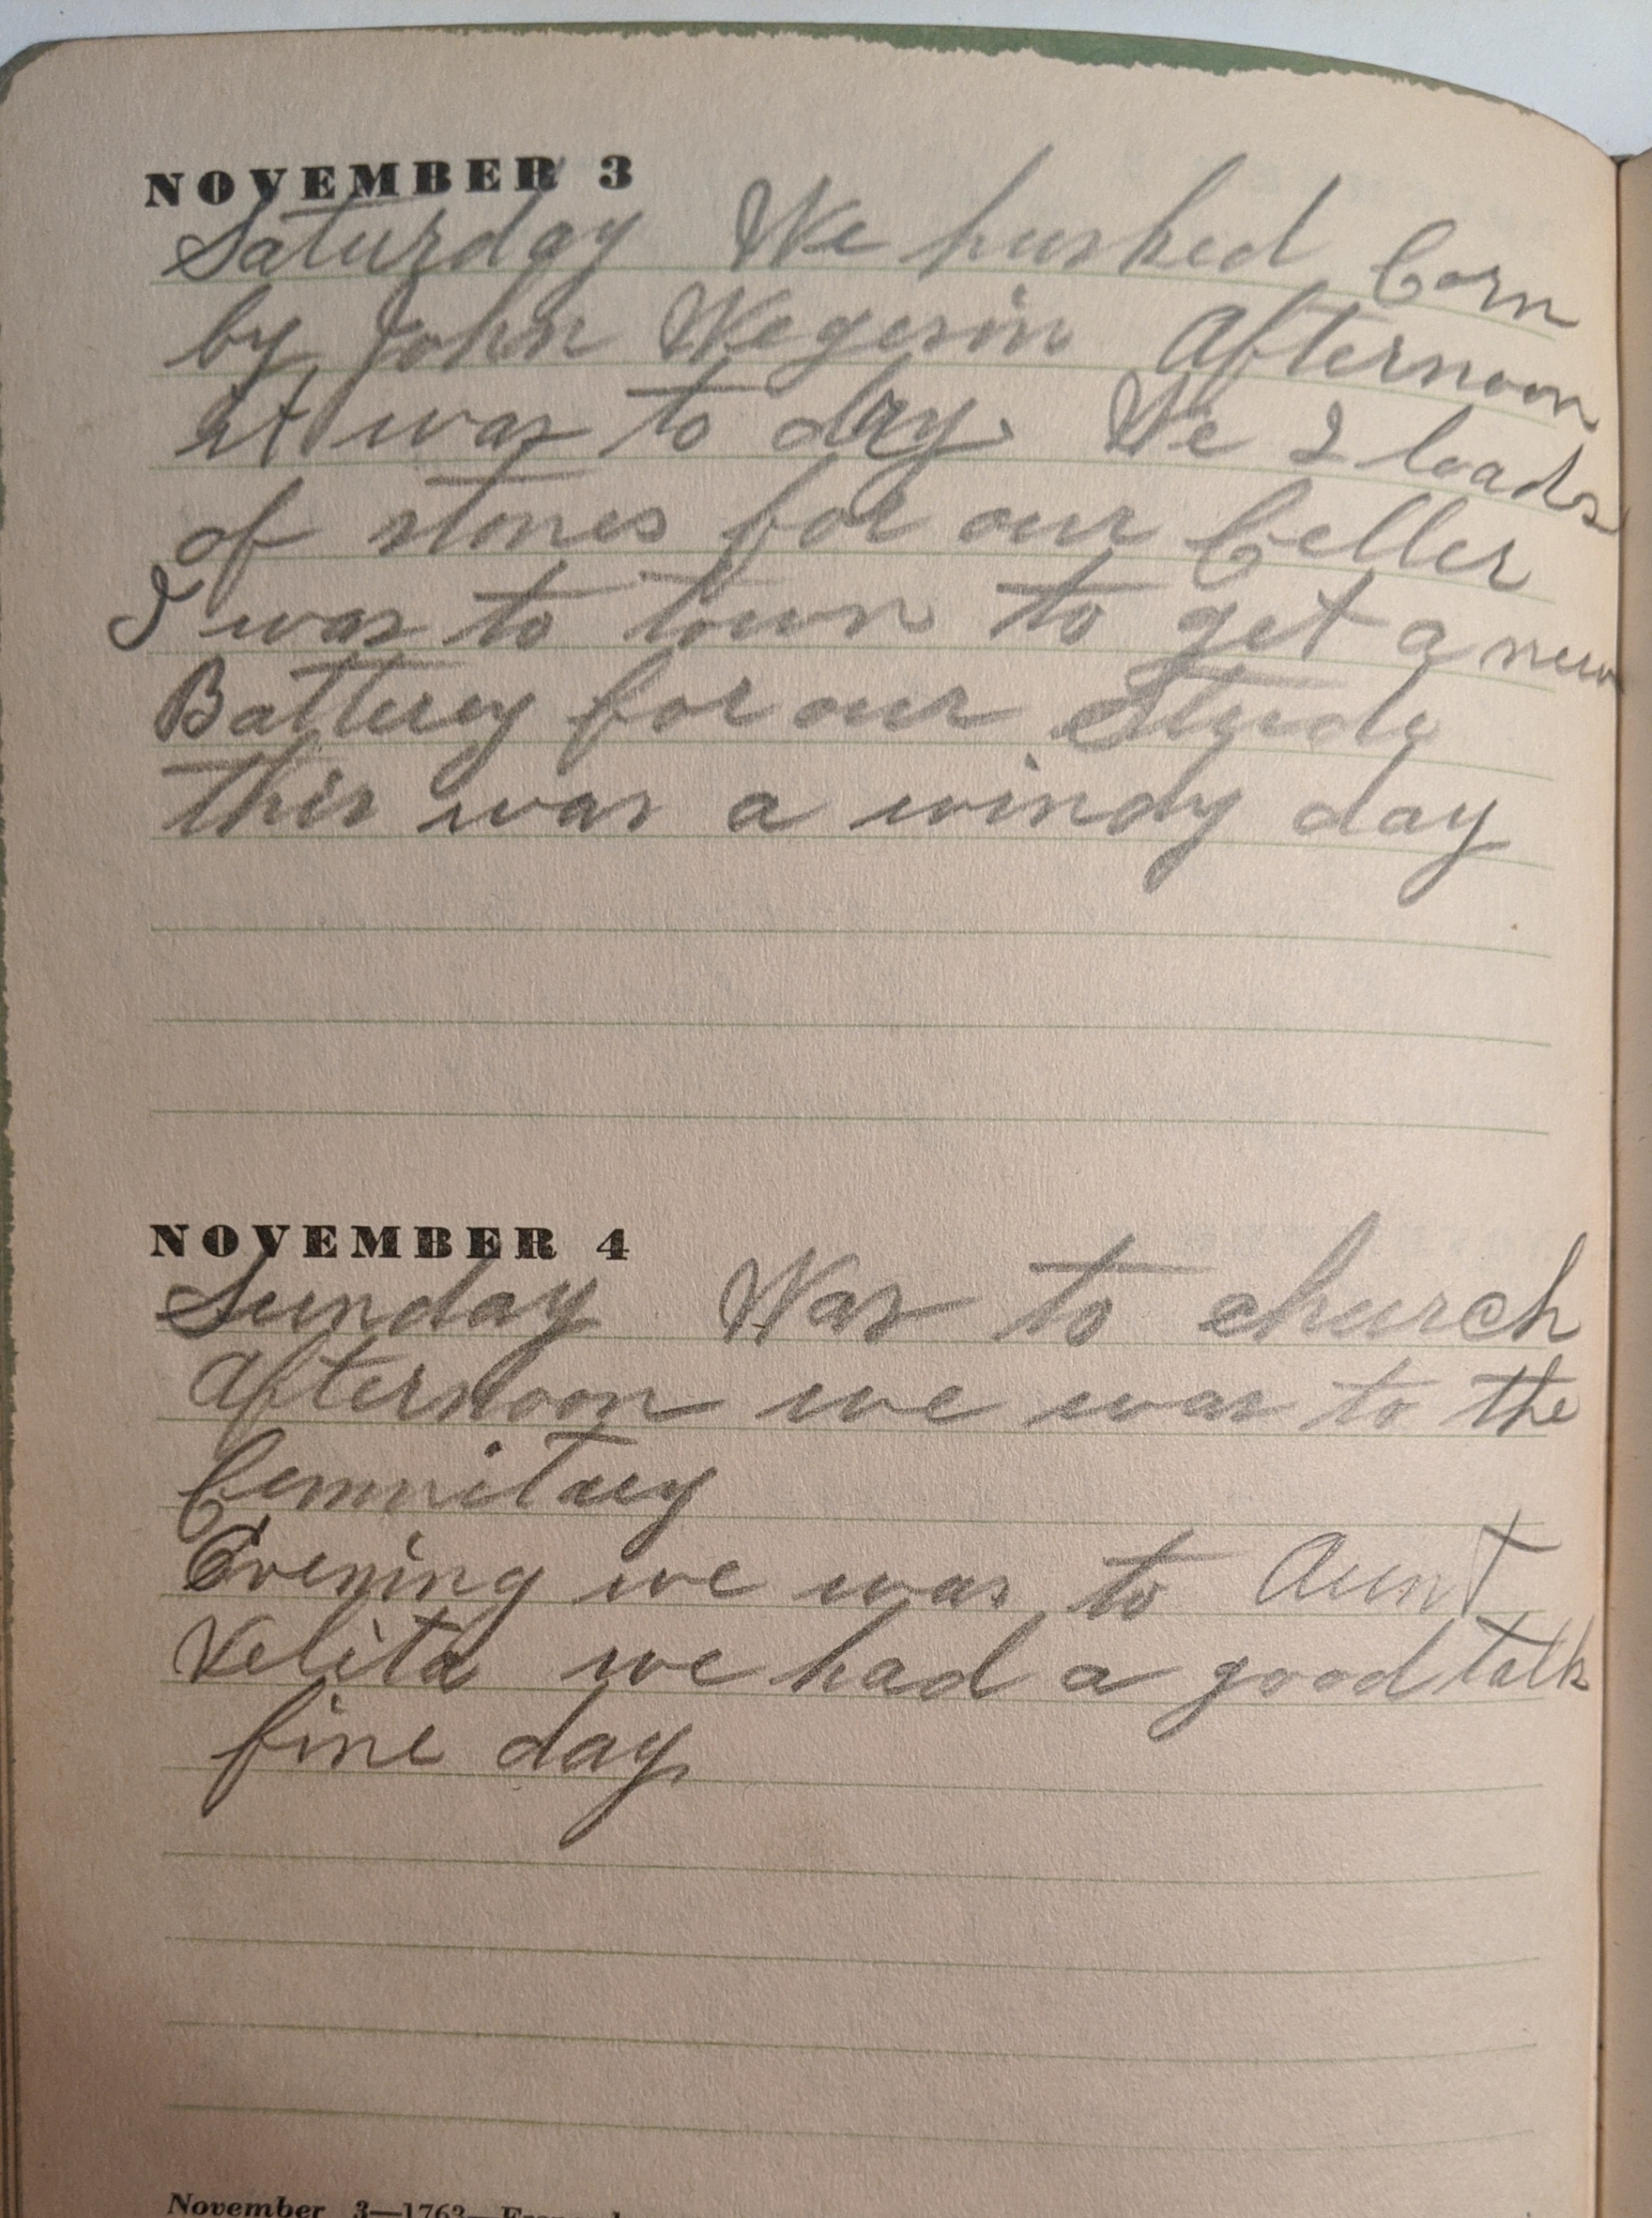 NOVEMBER 3
Saturday We husked Corn
by John Wegerin Afternoon
it was to dry. We 2 loads
of stones for our Celler
I was to town to get a new
Batterey for our Study
this was a windy day
NOVEMBER 4
Sunday Was to church
Afternoon we was to the
Cemnitary
Evening we was to Aunt
Velita we had a good talk
fine day
November 3—1762—